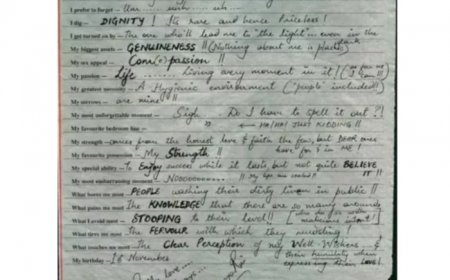 I prefer to forget – War ... with ... uh ...
I dig – DIGNITY! Its rare and hence Priceless!
I get turned on by – The one who'll lead me to "the light"... even in the dark
My biggest assets – GENUINENESS!! (Nothing about me is plastic)
My sex appeal – Com(e)passion!!
My passion – Life .... living every moment in it!
My greatest necessity – A Hygienic environment ("people" included!!)
My sorrows – are mine!!
My most unforgettable moment – Sigh .. Do I have to spell it out?!
My favourite bedroom line – HA! HA! JUST KIDDING!!
My strength – comes from the honest love & faith the few, but DEAR ones have for & in ME!
My favourite possession – My Strength!!
My special ability – To Enjoy success while it lasts, but not quite BELIEVE IT!!
My most embarrassing moment – Nooooo
What bores me most – PEOPLE washing their dirty linen in public!!
What pains me most – The KNOWLEDGE that there are so many around
What I avoid most – STOOPING to their level!!
What tires me most – The FERVOUR with which they
What touches me most – The Clear Perception of my Well Wishers &
their humility when expressing their LOVE!
My birthday – 18 November
love